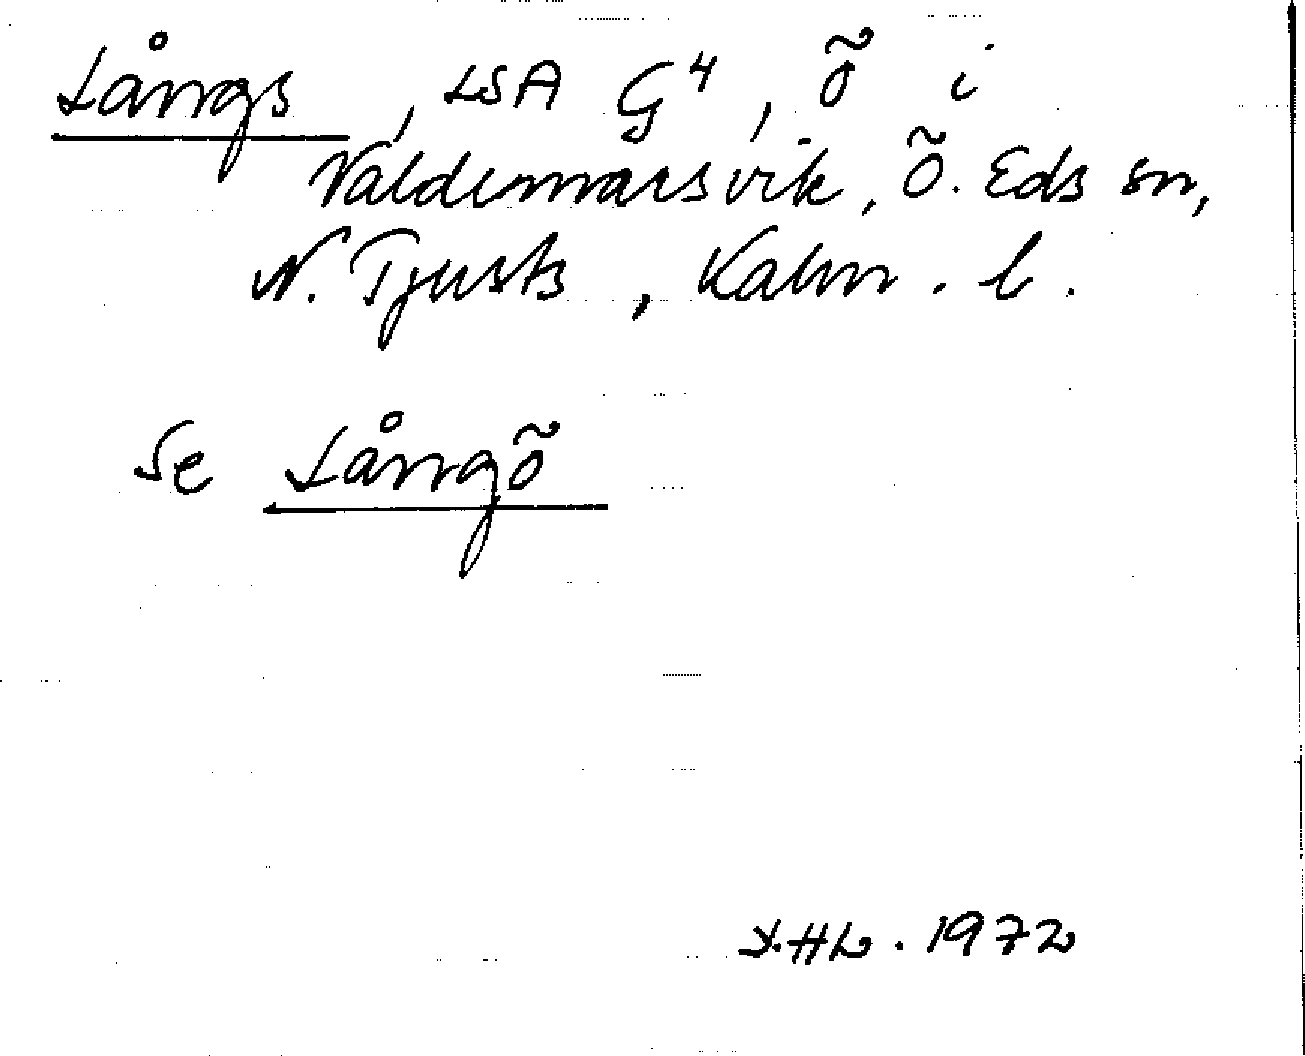 Långs, LSA G4, Ö i
Valdemarsvik, Ö. Eds sn,
N. Tjusts, Kalm. l.
Se Långö
HL. 1972